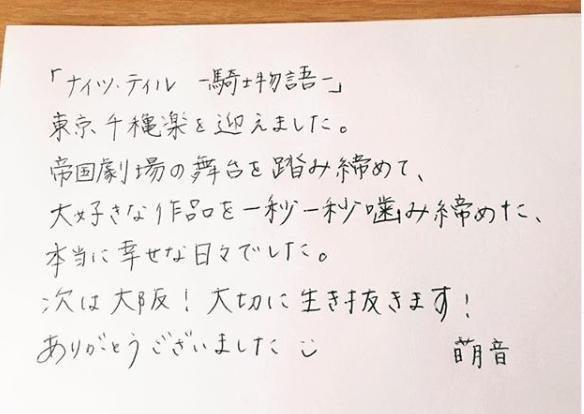 「ナイツ・テイル −騎士物語−」
東京千穐楽を迎えました。
帝国劇場の舞台を踏み締めて、
大好きな作品を一秒一秒噛み締めた、
本当に幸せな日々でした。
次は大阪！大切に生き抜きます！
ありがとうございました☺
萌音